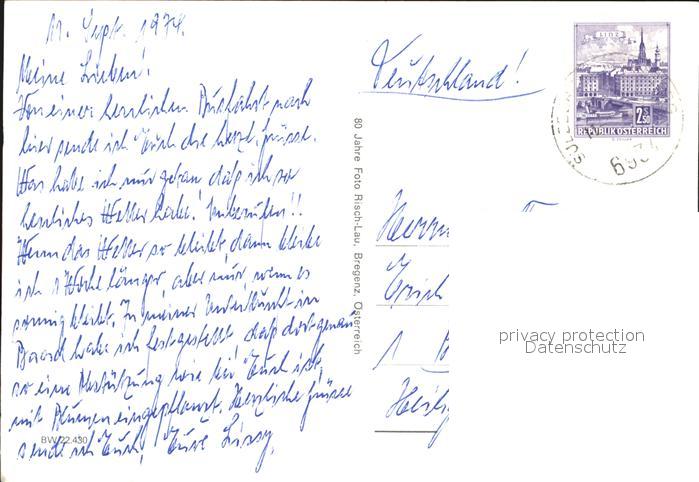 11. Sept. 1974.
Meine Lieben!
Von einer herrlichen Busfahrt nach
hier sende ich Euch die herzl. Grüsse.
Was habe ich nur getan daß ich so
herrliches Wetter habe! Unberufen!!
Wenn das Wetter so bleibt dann bleibe
ich 1 Woche länger aber nur, wenn es
sonnig bleibt. In meiner Unterkunft in
habe ich festgestellt daß dort genau
so eine Abstützung wie bei Euch ist,
mit Blumen eingepflanzt. Herzliche Grüsse
sende ich Euch, Eure Lissy,
BW 22.430
80 Jahre Foto Risch-Lau, Bregenz, Österreich
Deutschland!
LINZ
2.50
REPUBLIK ÖSTERREICH
SULZBERG
6934
Herrn
Erich
1
Heil
privacy protection
Datenschutz